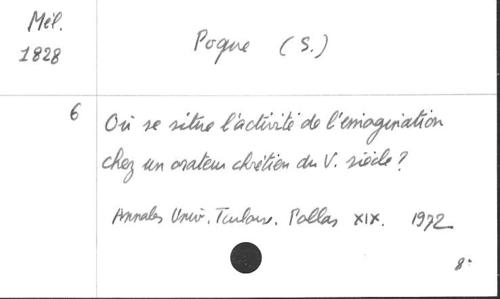 Mél. Poque (S.)
1828
6 Où se situe l'activité de l'imagination
chez un orateur chrétien du V. siècle?
Annales Univ. Toulouse. Pallas XIX. 1972
8°